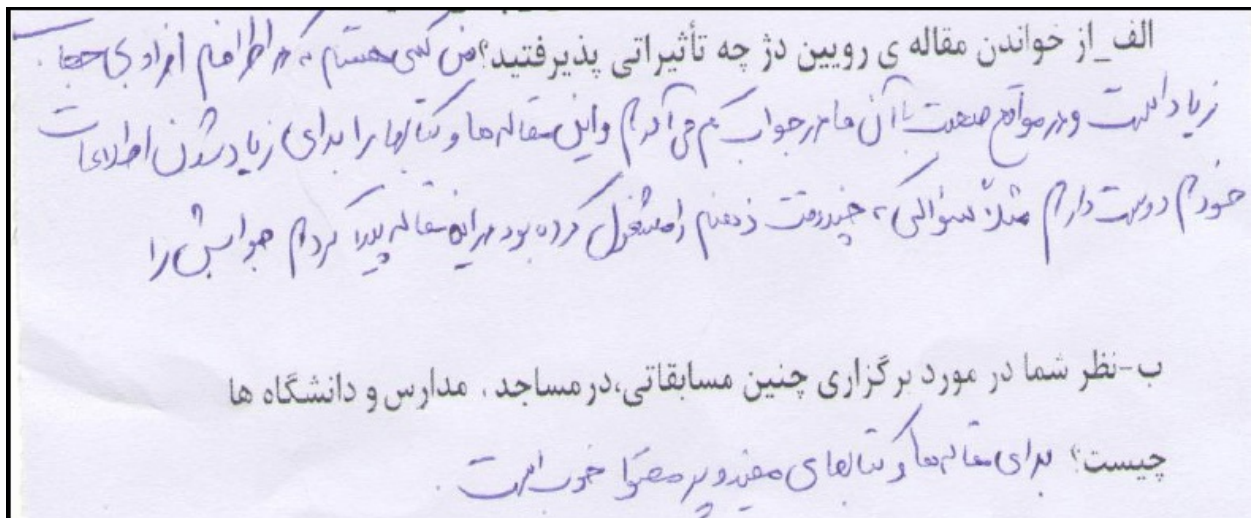 الف_از خواندن مقاله ی رویین دژ چه تأثیراتی پذیرفتید؟ من کسی هستم که در اطرافم افراد بی حجاب
زیاد است و در مواقع صحبت با آن ها در جواب کم می آورم و این مقاله ها و کتابها را برای زیاد شدن اطلاعات
خودم دوست دارم مثلاً سؤالی که چند وقت ذهنم را مشغول کرده بود در این مقاله پیدا کردم جوابش را
ب-نظر شما در مورد برگزاری چنین مسابقاتی،در مساجد . مدارس و دانشگاه ها
چیست؟ برای مقاله ها و کتابهای مفید و پر محتوا خوب است .